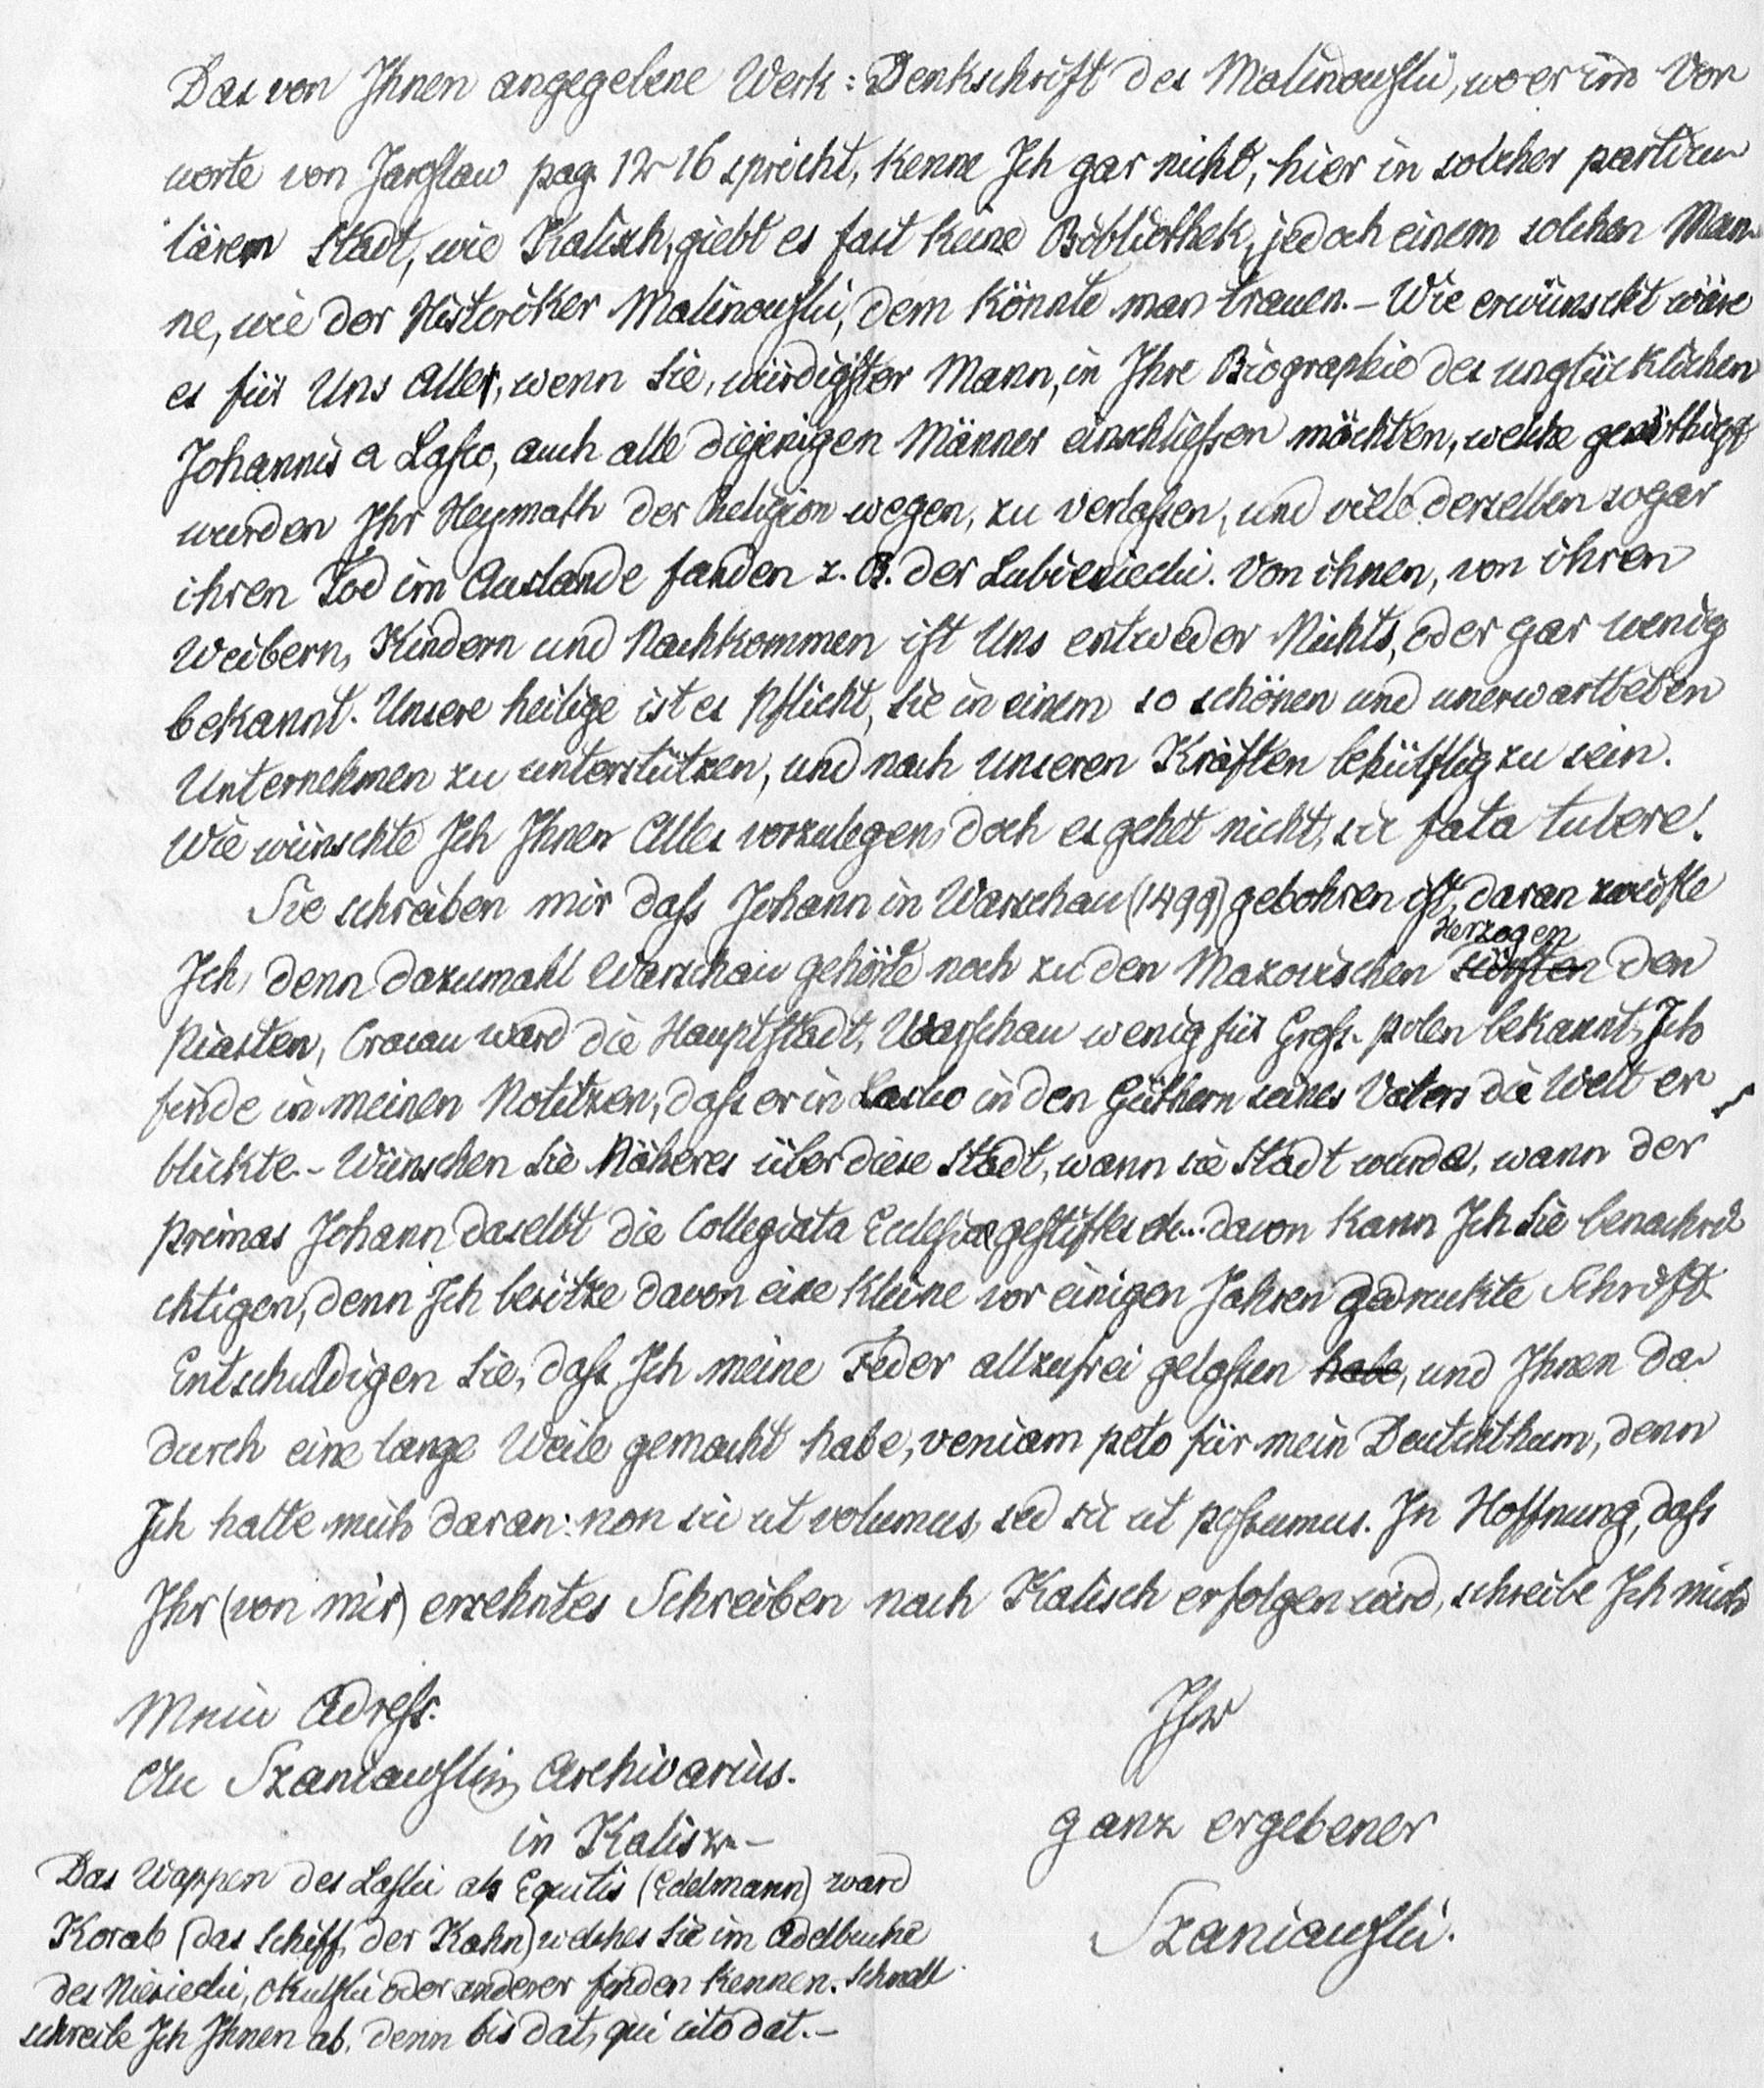 Das von Ihnen angegebene Werk: Denkschrift des Malinowski, wo er im Vor
worte von Jaroslaw pag. 12-16 spricht, kenne Ich gar nicht, hier in solcher particu-
lärem Stadt, wie Kalisch, giebt es fast keine Bibliothek, jedoch einem solchen Man-
ne, wie der Historiker Malinowski, dem könnte man trauen. – Wie erwünscht wäre
es für Uns Alle, wenn Sie, würdigster Mann, in Ihre Biographie des unglücklichen
Johannis a Lasco, auch alle diejenigen Männer einschliessen möchten, welche genöthigt
wurden Ihr Heymath der Religion wegen, zu verlassen, und viele derselben sogar
ihren Tod im Auslande fanden z. B. der Lubieniecki. Von ihnen, von ihren
Weibern, Kindern und Nachkommen ist Uns entweder Nichts, oder gar wenig
bekannt. Unsere heilige ist es Pflicht, Sie in einem so schönen und unerwarteten
Unternehmen zu unterstützen, und nach unseren Kräften behülflig zu sein.
Wie wünschte Ich Ihnen Alles vorzulegen, doch es gehet nicht, sic fata tulere!
Sie schreiben mir dass Johann in Warschau (1499) gebohren ist, daran zweifle
Herzogen
Ich, denn dazumahl Warschau gehörte noch zu den Mazovischen Fürsten den
Piasten, Cracau ward die Hauptstadt, Warschau wenig für Gross-Polen bekannt, Ich
finde in meinen Notitzen, dass er in Lasko in den Güthern seines Vaters die Welt er
blickte. – Wünschen Sie Näheres über diese Stadt, wann sie Stadt wurde, wann der
Primas Johann daselbt die Collegiata Ecclesia gestiftet etc... davon kann Ich Sie benachri
chtigen, denn Ich besitze davon eine kleine vor einigen Jahren gedruckte Schrift
Entschuldigen Sie, dass Ich meine Feder allzufrei gelassen habe, und Ihnen da-
durch eine lange Weile gemacht habe, veniam peto für mein Deutchthum, denn
Ich halte mich daran: non sic ut volumus, sed sic ut possumus. In Hoffnung, dass
Ihr (von mir) ersehntes Schreiben nach Kalisch erfolgen wird, schreibe Ich mich
Ihr
ganz ergebener
Szaniawski.
Mein Adress:
An Szaniawski, Archivarius.
in Kalisz. –
Das Wappen des Laski als Equitis (Edelmann) ward
Korab (das Schiff, der Kahn) welches Sie im Adelbuche
des Niesiecki, Okulski oder anderer finden kennen. Schnell
schreibe Ich Ihnen ab, denn bis dat, qui cito dat. –